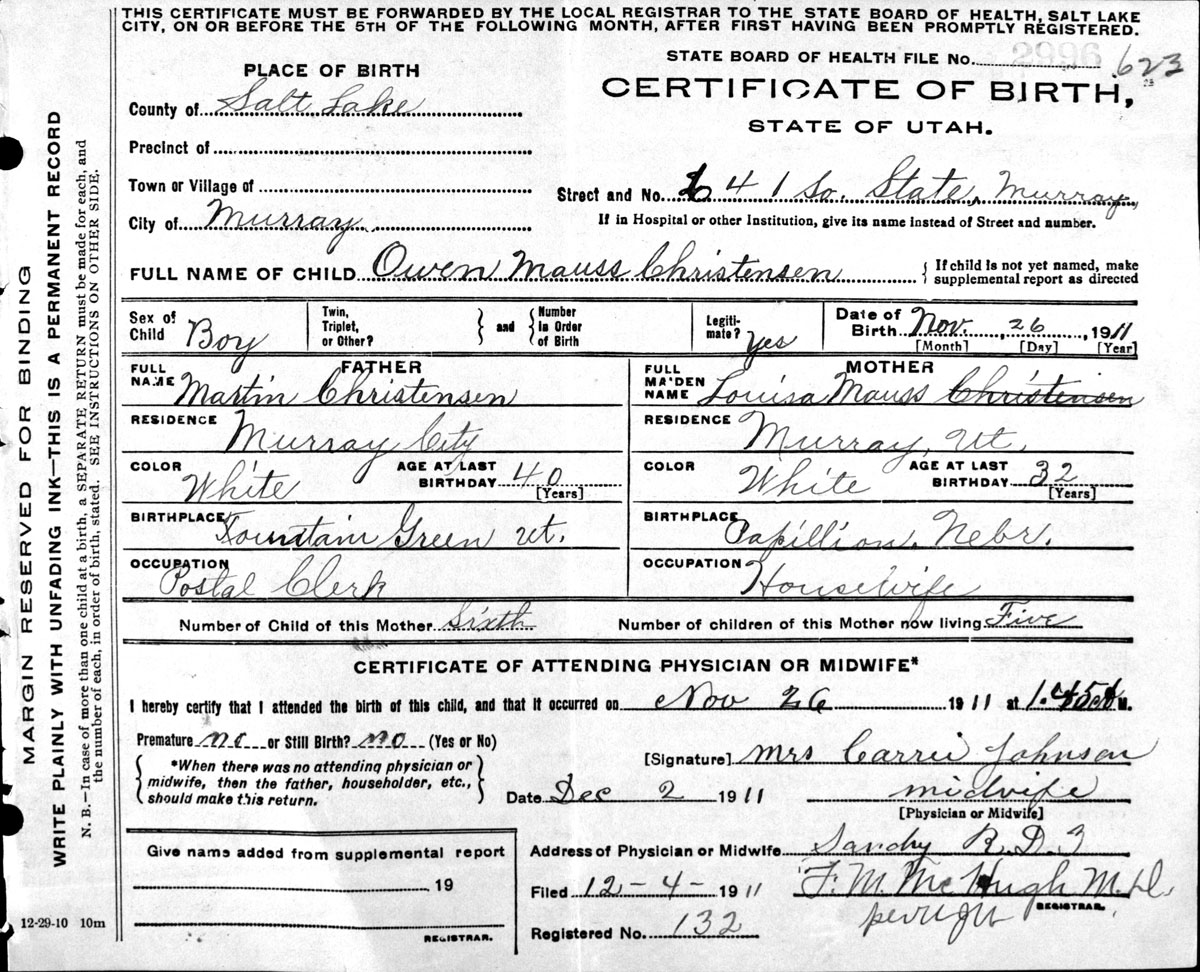 THIS CERTIFICATE MUST BE FORWARDED BY THE LOCAL REGISTRAR TO THE STATE BOARD OF HEALTH, SALT LAKE
CITY, ON OR BEFORE THE 5TH OF THE FOLLOWING MONTH, AFTER FIRST HAVING BEEN PROMPTLY REGISTERED.
STATE BOARD OF HEALTH FILE No. 2996 623
PLACE OF BIRTH
CERTIFICATE OF BIRTH,
STATE OF UTAH.
County of Salt Lake
Precinct of
Town or Village of
Street and No. 641 So. State, Murray,
City of Murray
If in Hospital or other Institution, give its name instead of Street and number.
FULL NAME OF CHILD Owen Mauss Christensen
{ If child is not yet named, make
supplemental report as directed
Sex of
Child Boy
Twin,
Triplet,
or Other?
} and {
Number
in Order
of Birth
Legiti-
mate? Yes
Date of
Birth Nov. 26, 1911
[Month] [Day] [Year]
FATHER
FULL
NAME Martin Christensen
MOTHER
FULL
MAIDEN
NAME Louisa Mauss Christensen
RESIDENCE Murray City
RESIDENCE Murray, Ut.
COLOR White
AGE AT LAST
BIRTHDAY 40
[Years]
COLOR White
AGE AT LAST
BIRTHDAY 32
[Years]
BIRTHPLACE Fountain Green Ut.
BIRTHPLACE Papillion, Nebr.
OCCUPATION Postal Clerk
OCCUPATION Housewife
Number of Child of this Mother Sixth
Number of children of this Mother now living Five
CERTIFICATE OF ATTENDING PHYSICIAN OR MIDWIFE*
I hereby certify that I attended the birth of this child, and that it occurred on Nov 26 1911 at 1.45 A M.
Premature no or Still Birth? no (Yes or No)
{ *When there was no attending physician or
midwife, then the father, householder, etc.,
should make this return. }
[Signature] Mrs Carrie Johnson
Date Dec 2 1911
midwife
[Physician or Midwife]
Give name added from supplemental report
19
REGISTRAR.
Address of Physician or Midwife Sandy R.D.3
Filed 12-4-1911
F. M. McHugh M.D.
REGISTRAR.
Registered No. 132
12-29-10 10m
MARGIN RESERVED FOR BINDING
WRITE PLAINLY WITH UNFADING INK—THIS IS A PERMANENT RECORD
N. B.—In case of more than one child at a birth, a SEPARATE RETURN must be made for each, and
the number of each, in order of birth, stated. SEE INSTRUCTIONS ON OTHER SIDE.